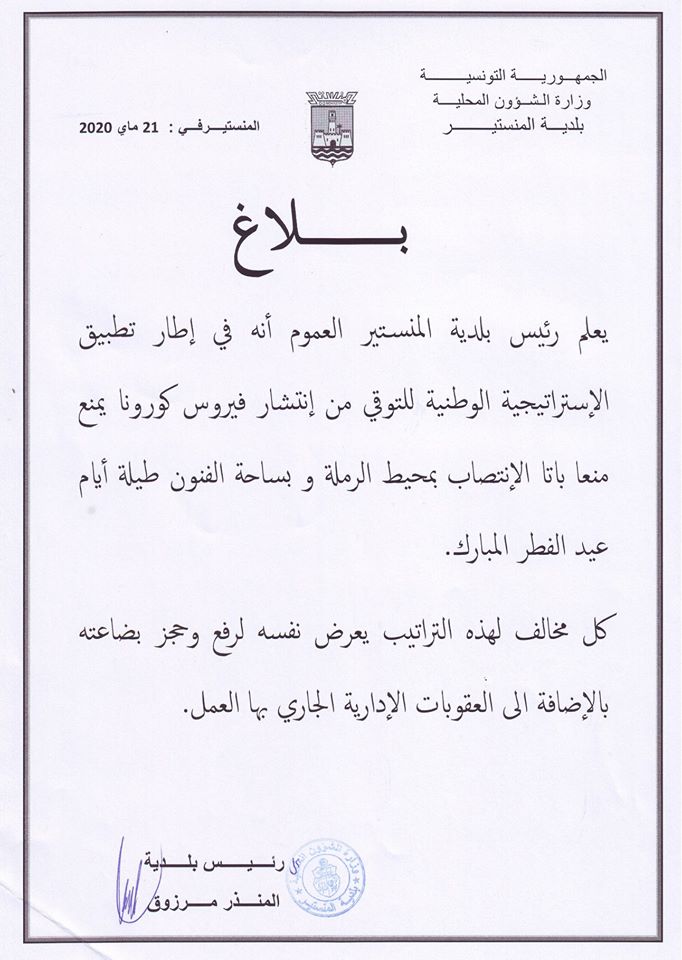 الجمهورية التونسية
وزارة الشؤون المحلية
بلدية المنستير
المنستيرفي : 21 ماي 2020
بلاغ
يعلم رئيس بلدية المنستير العموم أنه في إطار تطبيق
الإستراتيجية الوطنية للتوقي من إنتشار فيروس كورونا يمنع
منعا باتا الإنتصاب بمحيط الرملة و بساحة الفنون طيلة أيام
عيد الفطر المبارك.
كل مخالف لهذه التراتيب يعرض نفسه لرفع وحجز بضاعته
بالإضافة الى العقوبات الإدارية الجاري بها العمل.
رئيس بلدية
المنذر مرزوق
وزارة الشؤون
بلدية المنستير